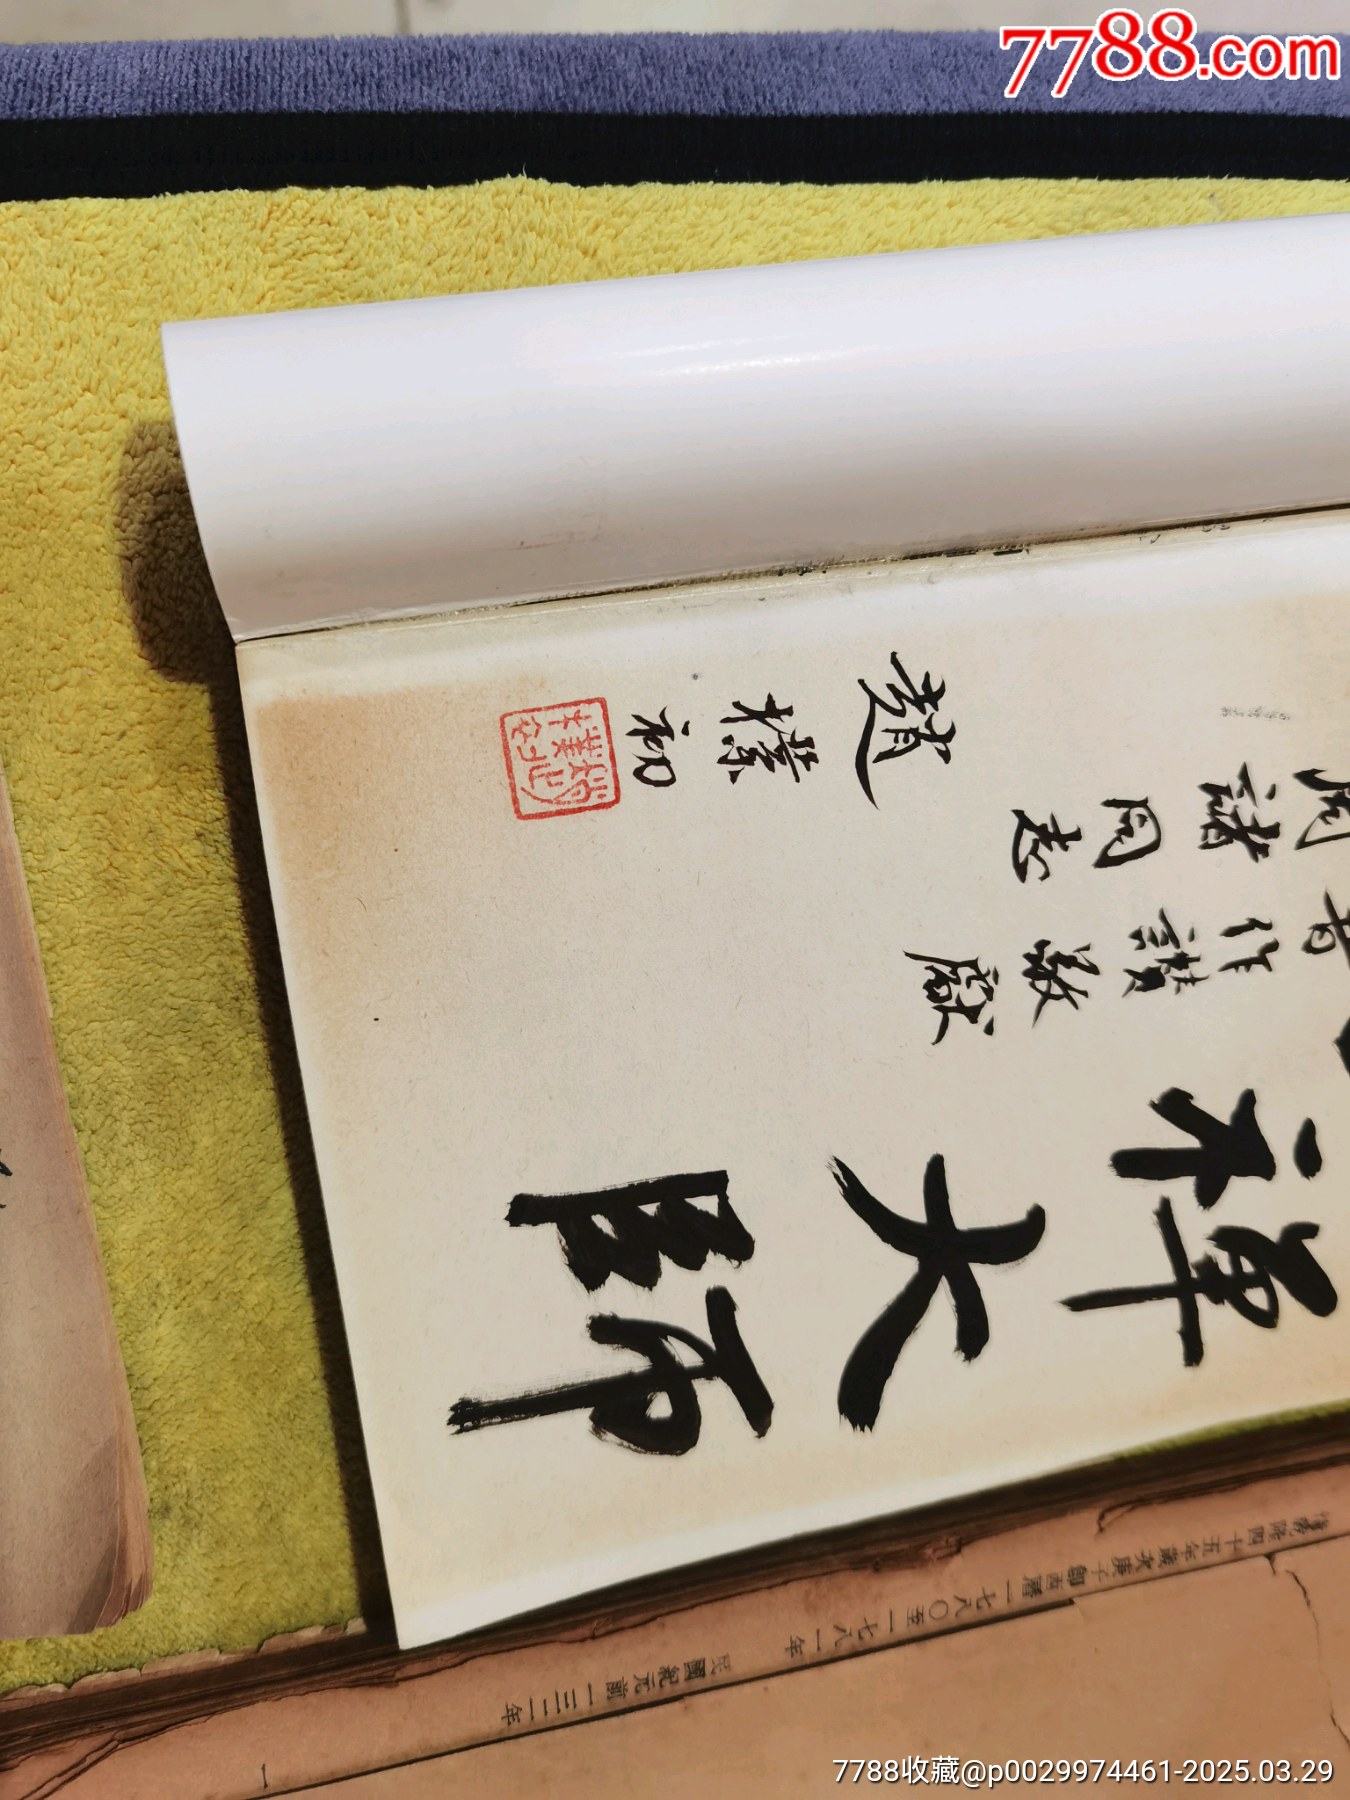 7788.com
禪大師
作讚敬獻
諸同志
趙樸初
隆四十五年歲次庚子即西曆一七八〇至一七八一年
民國紀元前一三二年
一
7788收藏@p0029974461-2025.03.29